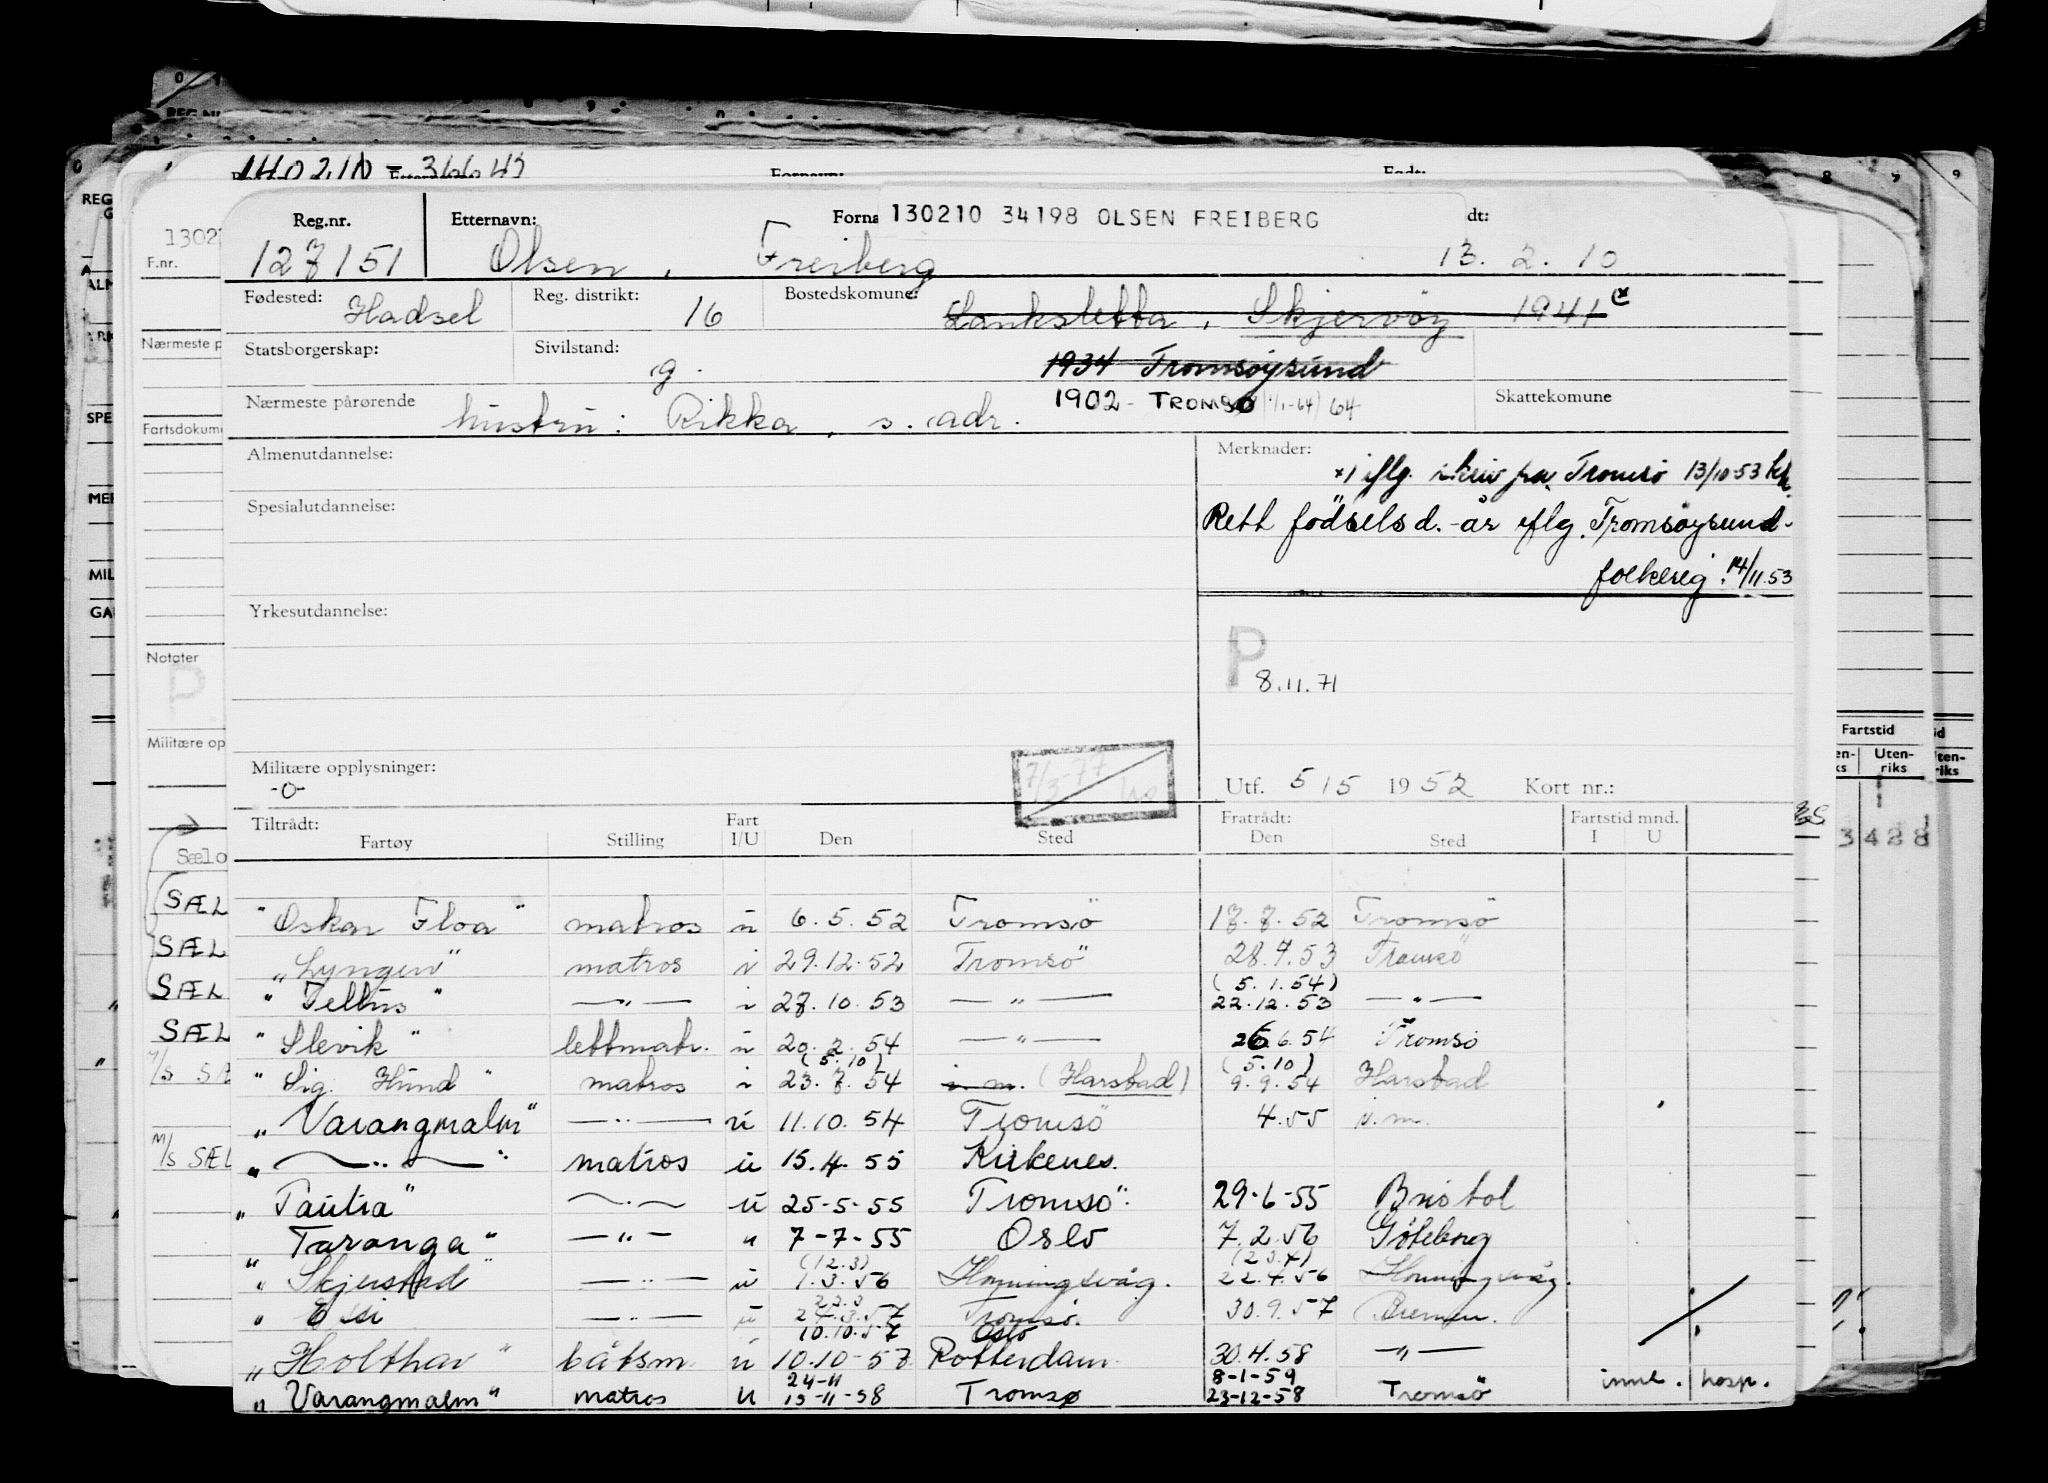 140210 - 36645
Fornavn:
130210 34198 OLSEN FREIBERG
Reg.nr. Etternavn: Forna dt:
127151 Olsen, Freiberg 13. 2. 10
Fødested: Hadsel Reg. distrikt: 16 Bostedskomune: Lanksletta, Skjervöy 1941 x
Statsborgerskap: Sivilstand: g. 1934 Tromsöysund
Nærmeste pårørende hustru: Rikka, s. adr. 1902 - TROMSØ (1/1-64) 64 Skattekomune
Almenutdannelse: Merknader:
x) iflg. skriv fra Tromsö 13/10-53
Spesialutdannelse: Rett födselsd.-år iflg. Tromsöysund-
folkereg. 14/11.53
Yrkesutdannelse:
P
8.11.71
7/3-77
Militære opplysninger:
-0-
Utf. 5/5 1952 Kort nr.:
Tiltrådt: Fart Fratrådt: Fartstid mnd.
Fartøy Stilling I/U Den Sted Den Sted I U
SÆL "Oskar Floa" matros u 6.5.52 Tromsö 17.7.52 Tromsö
SÆL "Lyngen" matros i 29.12.52 Tromsö 28.7.53 Tromsö
(5.1.54)
SÆL "Tellus" —"— i 27.10.53 —"— 22.12.53 —"—
SÆL "Slevik" lettmatr. u 20.2.54 —"— 26.6.54 Tromsö
(5.10) (5.10)
M/S SÆ "Sig. Hund" matros i 23.7.54 i.m. (Harstad) 9.9.54 Harstad
"Varangmalm" —"— u 11.10.54 Tromsö 4.55 i.m.
M/S SÆL " —"— " matros u 15.4.55 Kirkenes
"Taulia" —"— u 25-5-55 Tromsö 29-6-55 Bristol
"Taranga" —"— " 7-7-55 Oslo 7.2.56 Göteborg
(12.3) (23.4)
"Skjerstad" —"— u 1.3.56 Honningsvåg. 22.4.56 Honningsvåg.
23.3
"Elsi —"— u 24.3.57 Tromsö. 30.9.57 Bremen.
10.10.57 Oslo
"Holthav" båtsm. u 10.10-57 Rotterdam. 30.4.58 —"—
24-11 8-1-59
"Varangmalm" matros u 15-11-58 Tromsø 23-12-58 Tromsö innl. hosp.
REG
1302
F.nr.
Nærmeste p
Fartsdokum
Notater
P
Militære op
Sælo
Fartstid
Uten-
riks
3428